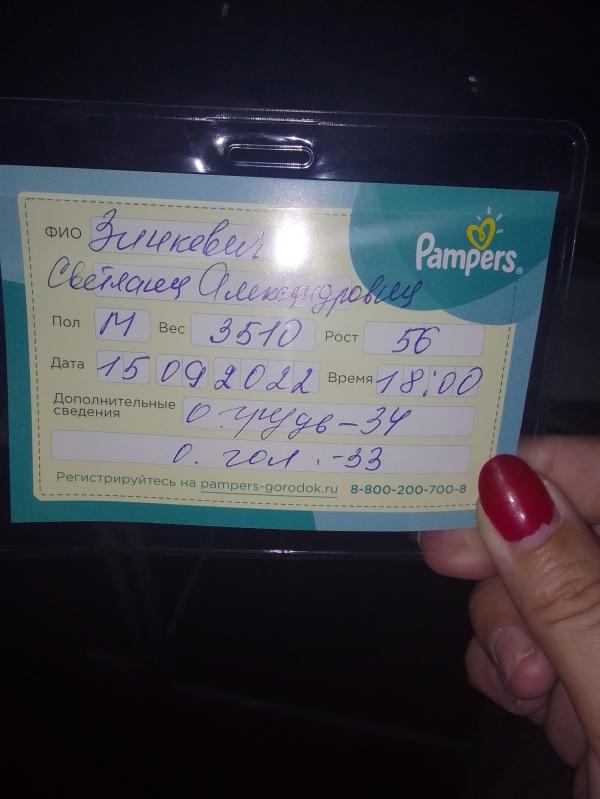 ФИО Зинкевич
Pampers®
Светлана Александровна
Пол М Вес 3510 Рост 56
Дата 15 09 2022 Время 18:00
Дополнительные
сведения о. грудь-34
о. гол.-33
Регистрируйтесь на pampers-gorodok.ru 8-800-200-700-8